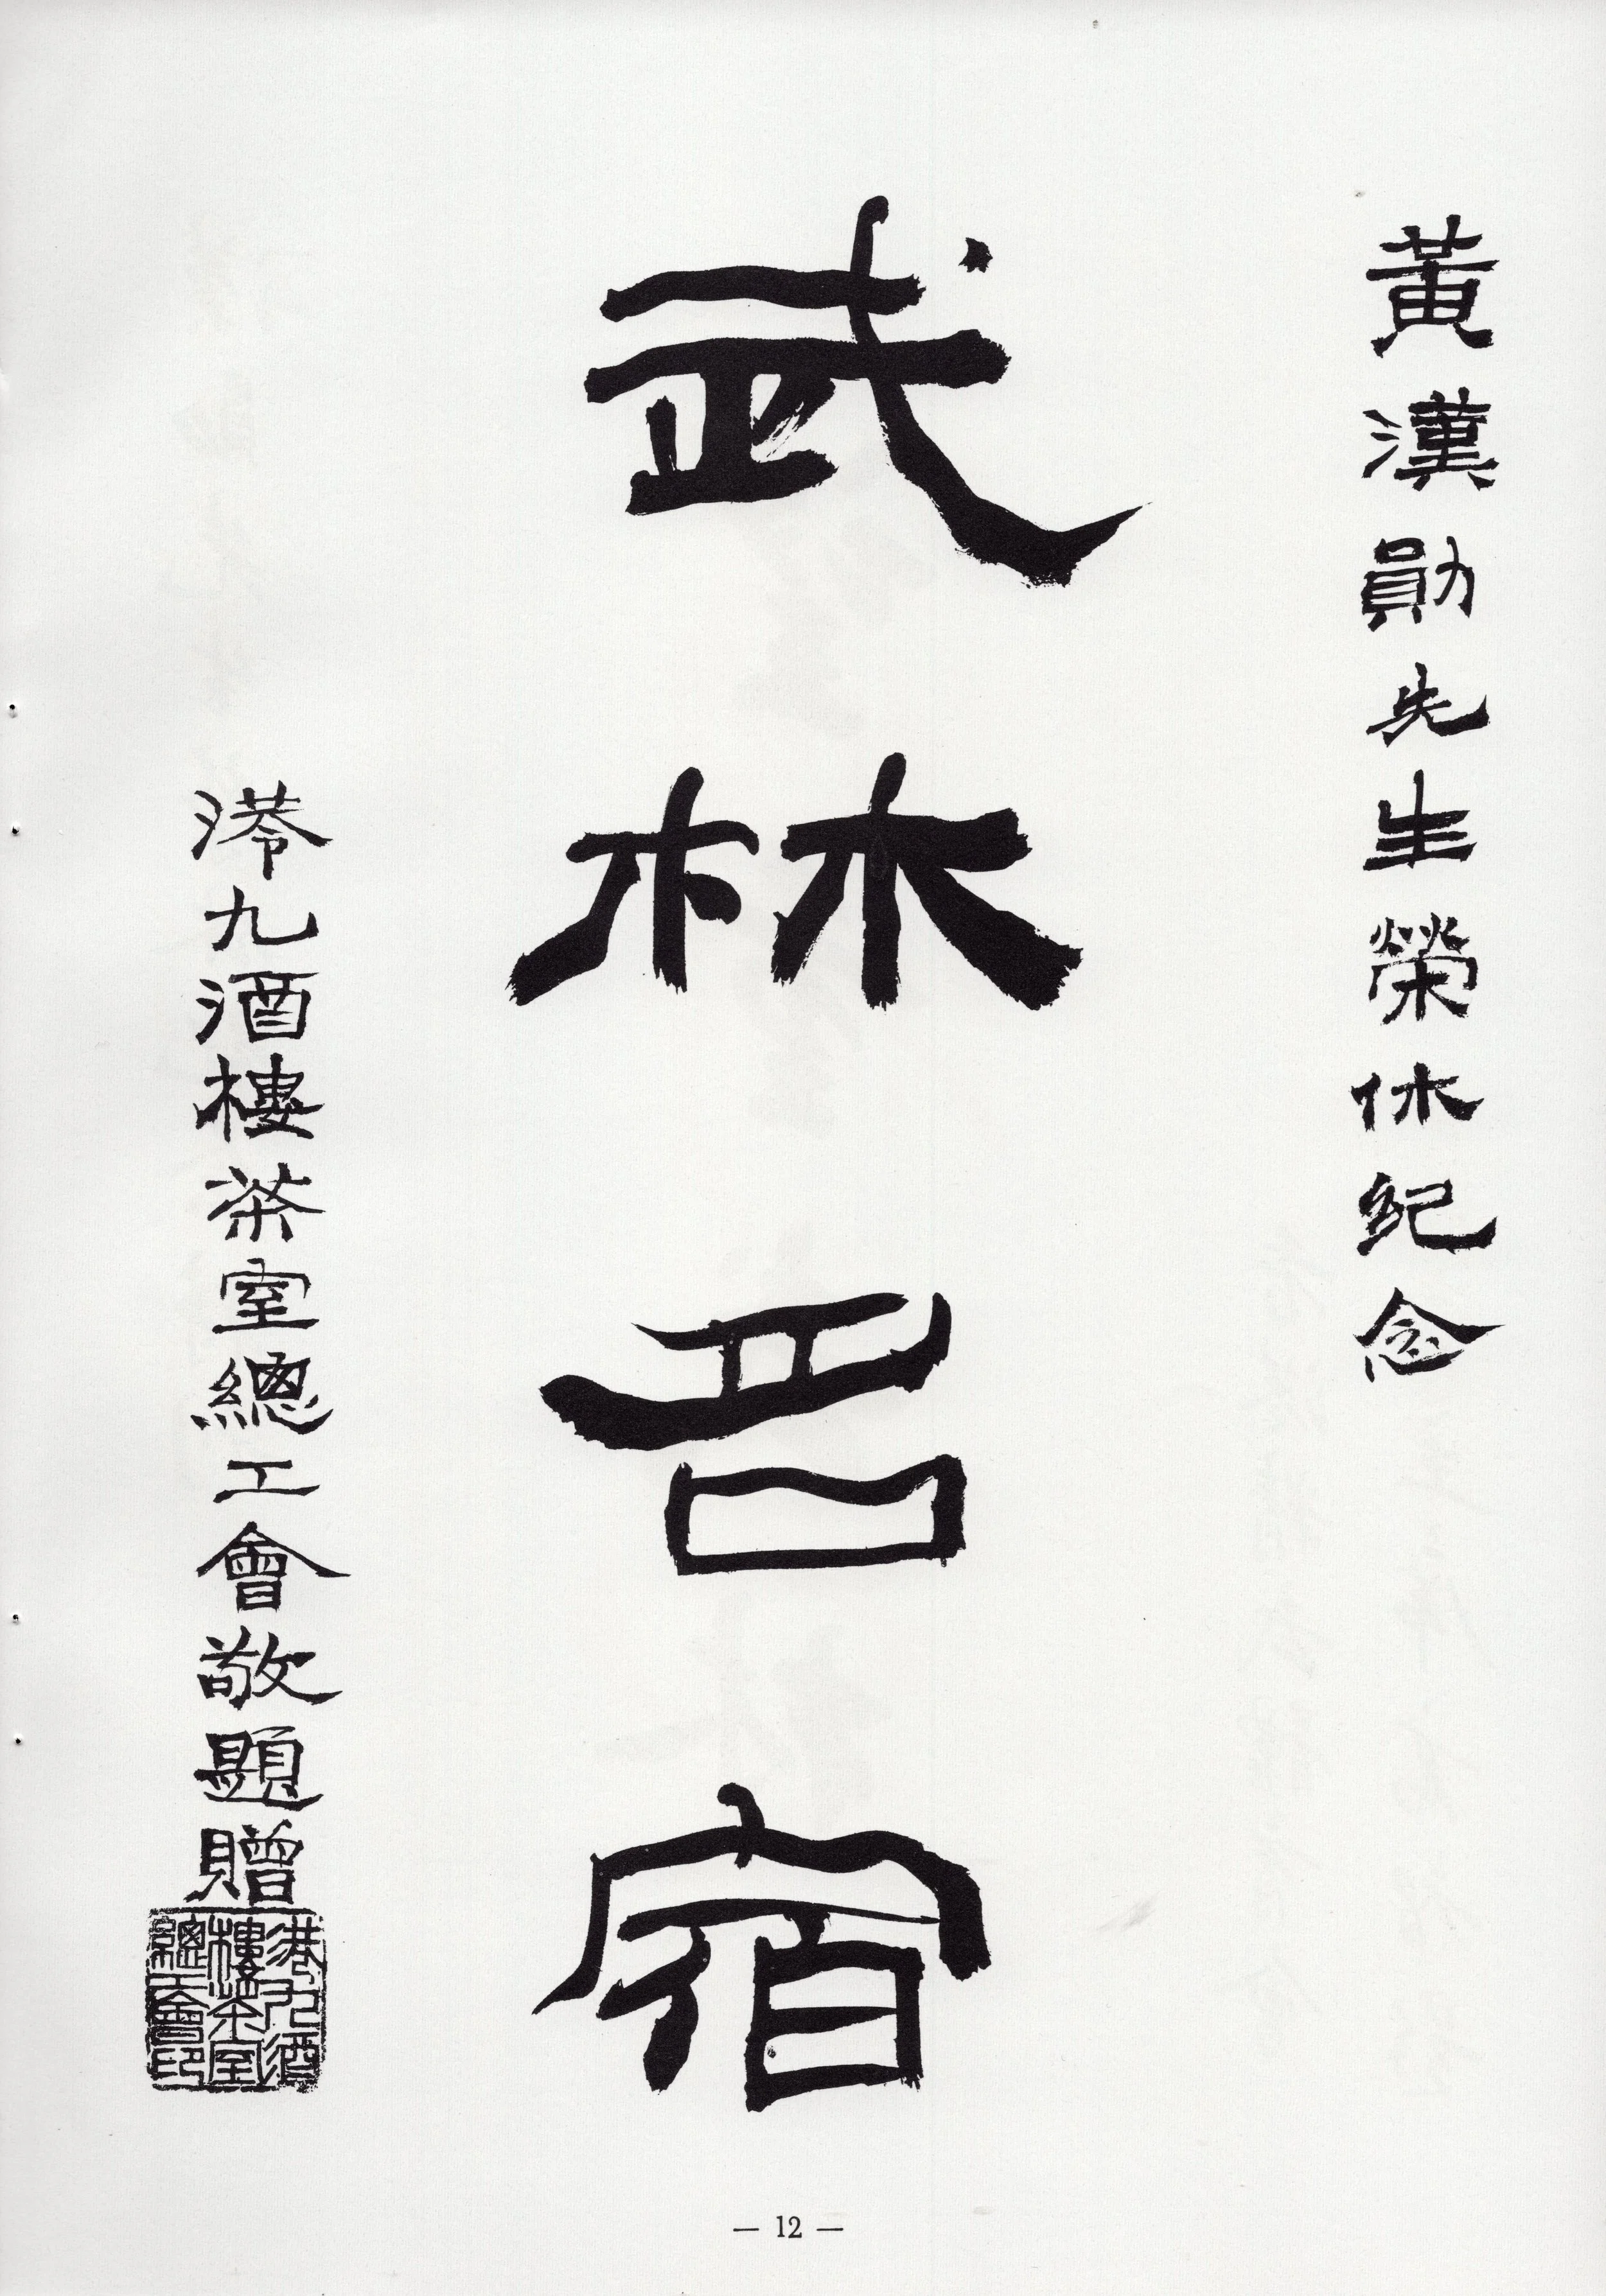 黃漢勛先生榮休紀念
武林名宿
港九酒樓茶室總工會敬題贈
港九酒
樓茶室
總工會印
— 12 —